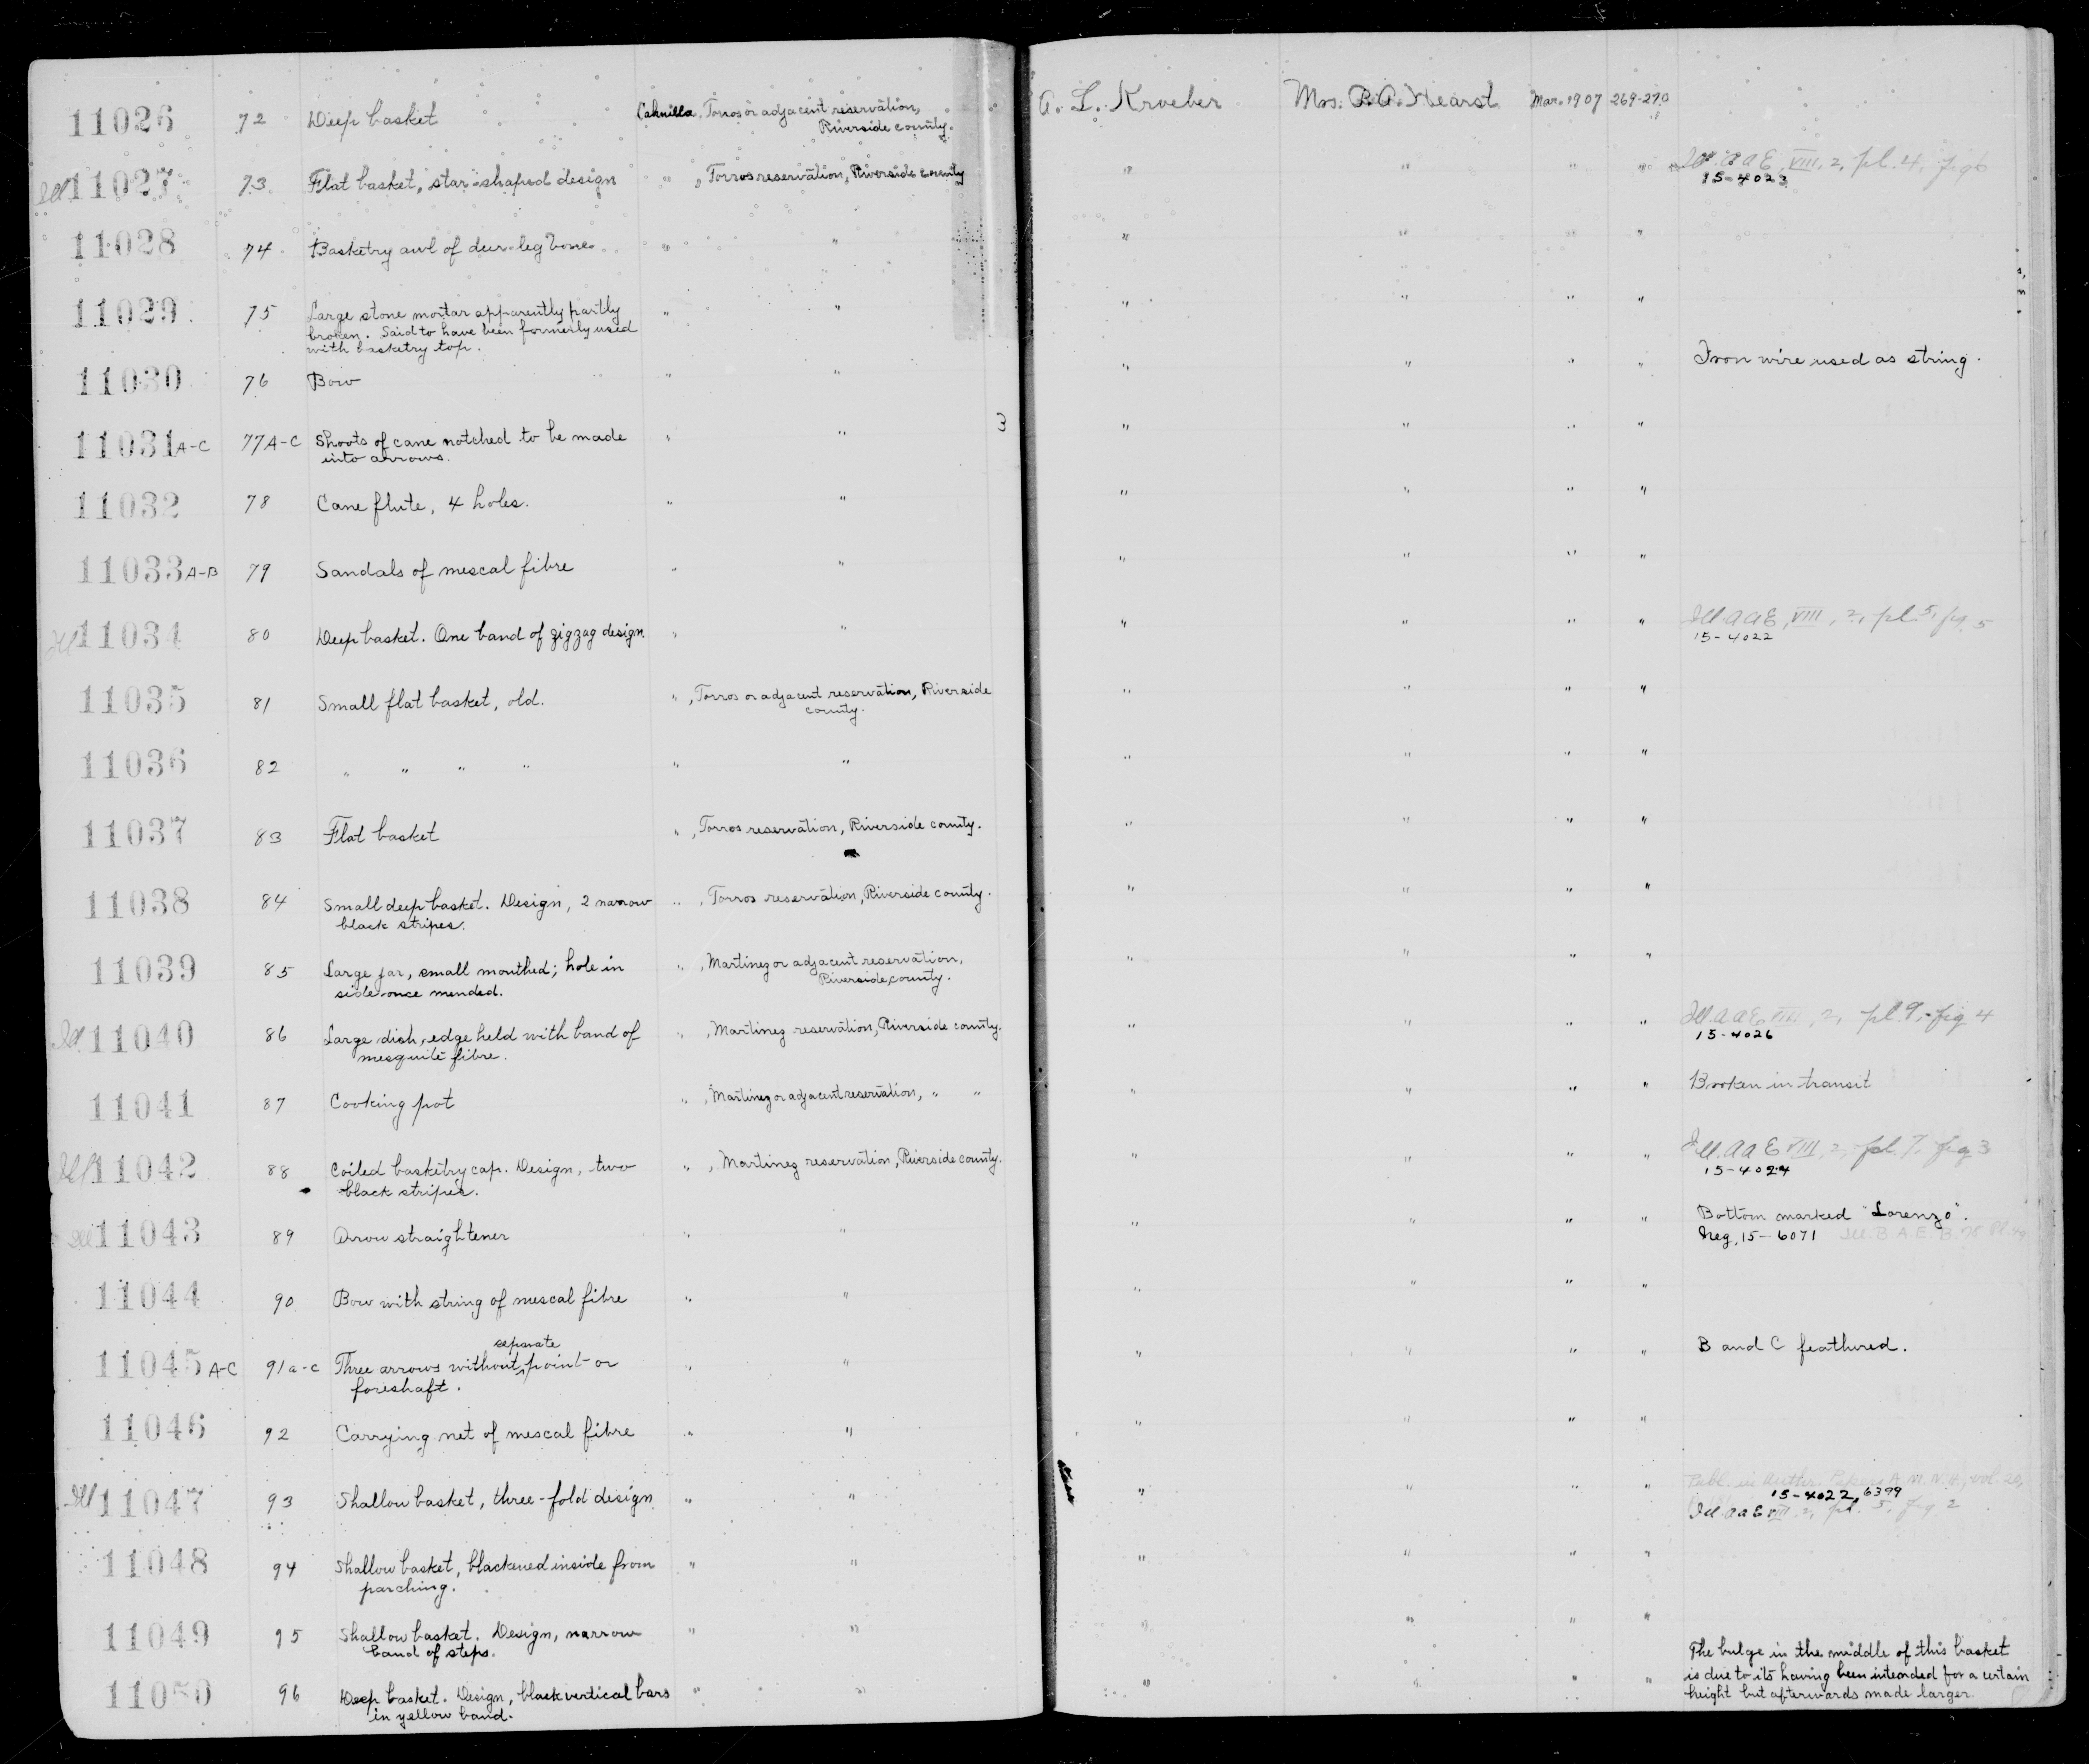 11026 72 Deep basket Cahuilla, Torros or adjacent reservation, A. L. Kroeber Mrs. P. A. Hearst Mar. 1907 269-270
Riverside county.
Ill 11027 73 Flat basket, star-shaped design " , Torros reservation, Riverside county " " " " Ill. AAE, VIII, 2, pl. 4, fig 6
15-4023
11028 74 Basketry awl of deer-leg bone. " " " " " "
11029 75 Large stone mortar apparently partly " " " " " "
broken. Said to have been formerly used
with basketry top.
11030 76 Bow " " " " " " Iron wire used as string.
11031 A-C 77A-C Shoots of cane notched to be made " " 3 " " " "
into arrows.
11032 78 Cane flute, 4 holes. " " " " " "
11033 A-B 79 Sandals of mescal fibre " " " " " "
Ill 11034 80 Deep basket. One band of zigzag design. " " " " " " Ill. AAE, VIII, 2, pl. 5, fig. 5
15-4022
11035 81 Small flat basket, old. " , Torros or adjacent reservation, Riverside " " " "
county.
11036 82 " " " " " " " " " "
11037 83 Flat basket " , Torros reservation, Riverside county. " " " "
11038 84 Small deep basket. Design, 2 narrow " , Torros reservation, Riverside county. " " " "
black stripes.
11039 85 Large jar, small mouthed; hole in " , Martinez or adjacent reservation, " " " "
side once mended. Riverside county.
Ill 11040 86 Large dish, edge held with band of " , Martinez reservation, Riverside county. " " " " Ill. AAE, VIII, 2, pl. 9, fig 4
mesquite fibre. 15-4026
11041 87 Cooking pot " , Martinez or adjacent reservation, " " " " " " Broken in transit
Ill 11042 88 Coiled basketry cap. Design, two " , Martinez reservation, Riverside county. " " " " Ill. AAE VIII, 2, pl. 7, fig 3
black stripes. 15-4024
Ill 11043 89 Arrow straightener " " " " " " Bottom marked "Lorenzo".
Neg. 15-6071 Ill. B.A.E. B. 78 Pl.
11044 90 Bow with string of mescal fibre " " " " " "
separate
11045 A-C 91a-c Three arrows without point or " " " " " " B and C feathered.
foreshaft.
11046 92 Carrying net of mescal fibre " " " " " "
Ill 11047 93 Shallow basket, three-fold design " " " " " " Publ. in Anthr. Papers A.M.N.H., vol. 20,
15-4022, 6399
Ill. AAE VIII, 2, pl. 5, fig 2
11048 94 Shallow basket, blackened inside from " " " " " "
parching.
11049 95 Shallow basket. Design, narrow " " " " " "
band of steps.
11050 96 Deep basket. Design, black vertical bars " " " " " " The bulge in the middle of this basket
in yellow band. is due to its having been intended for a certain
height but afterwards made larger.